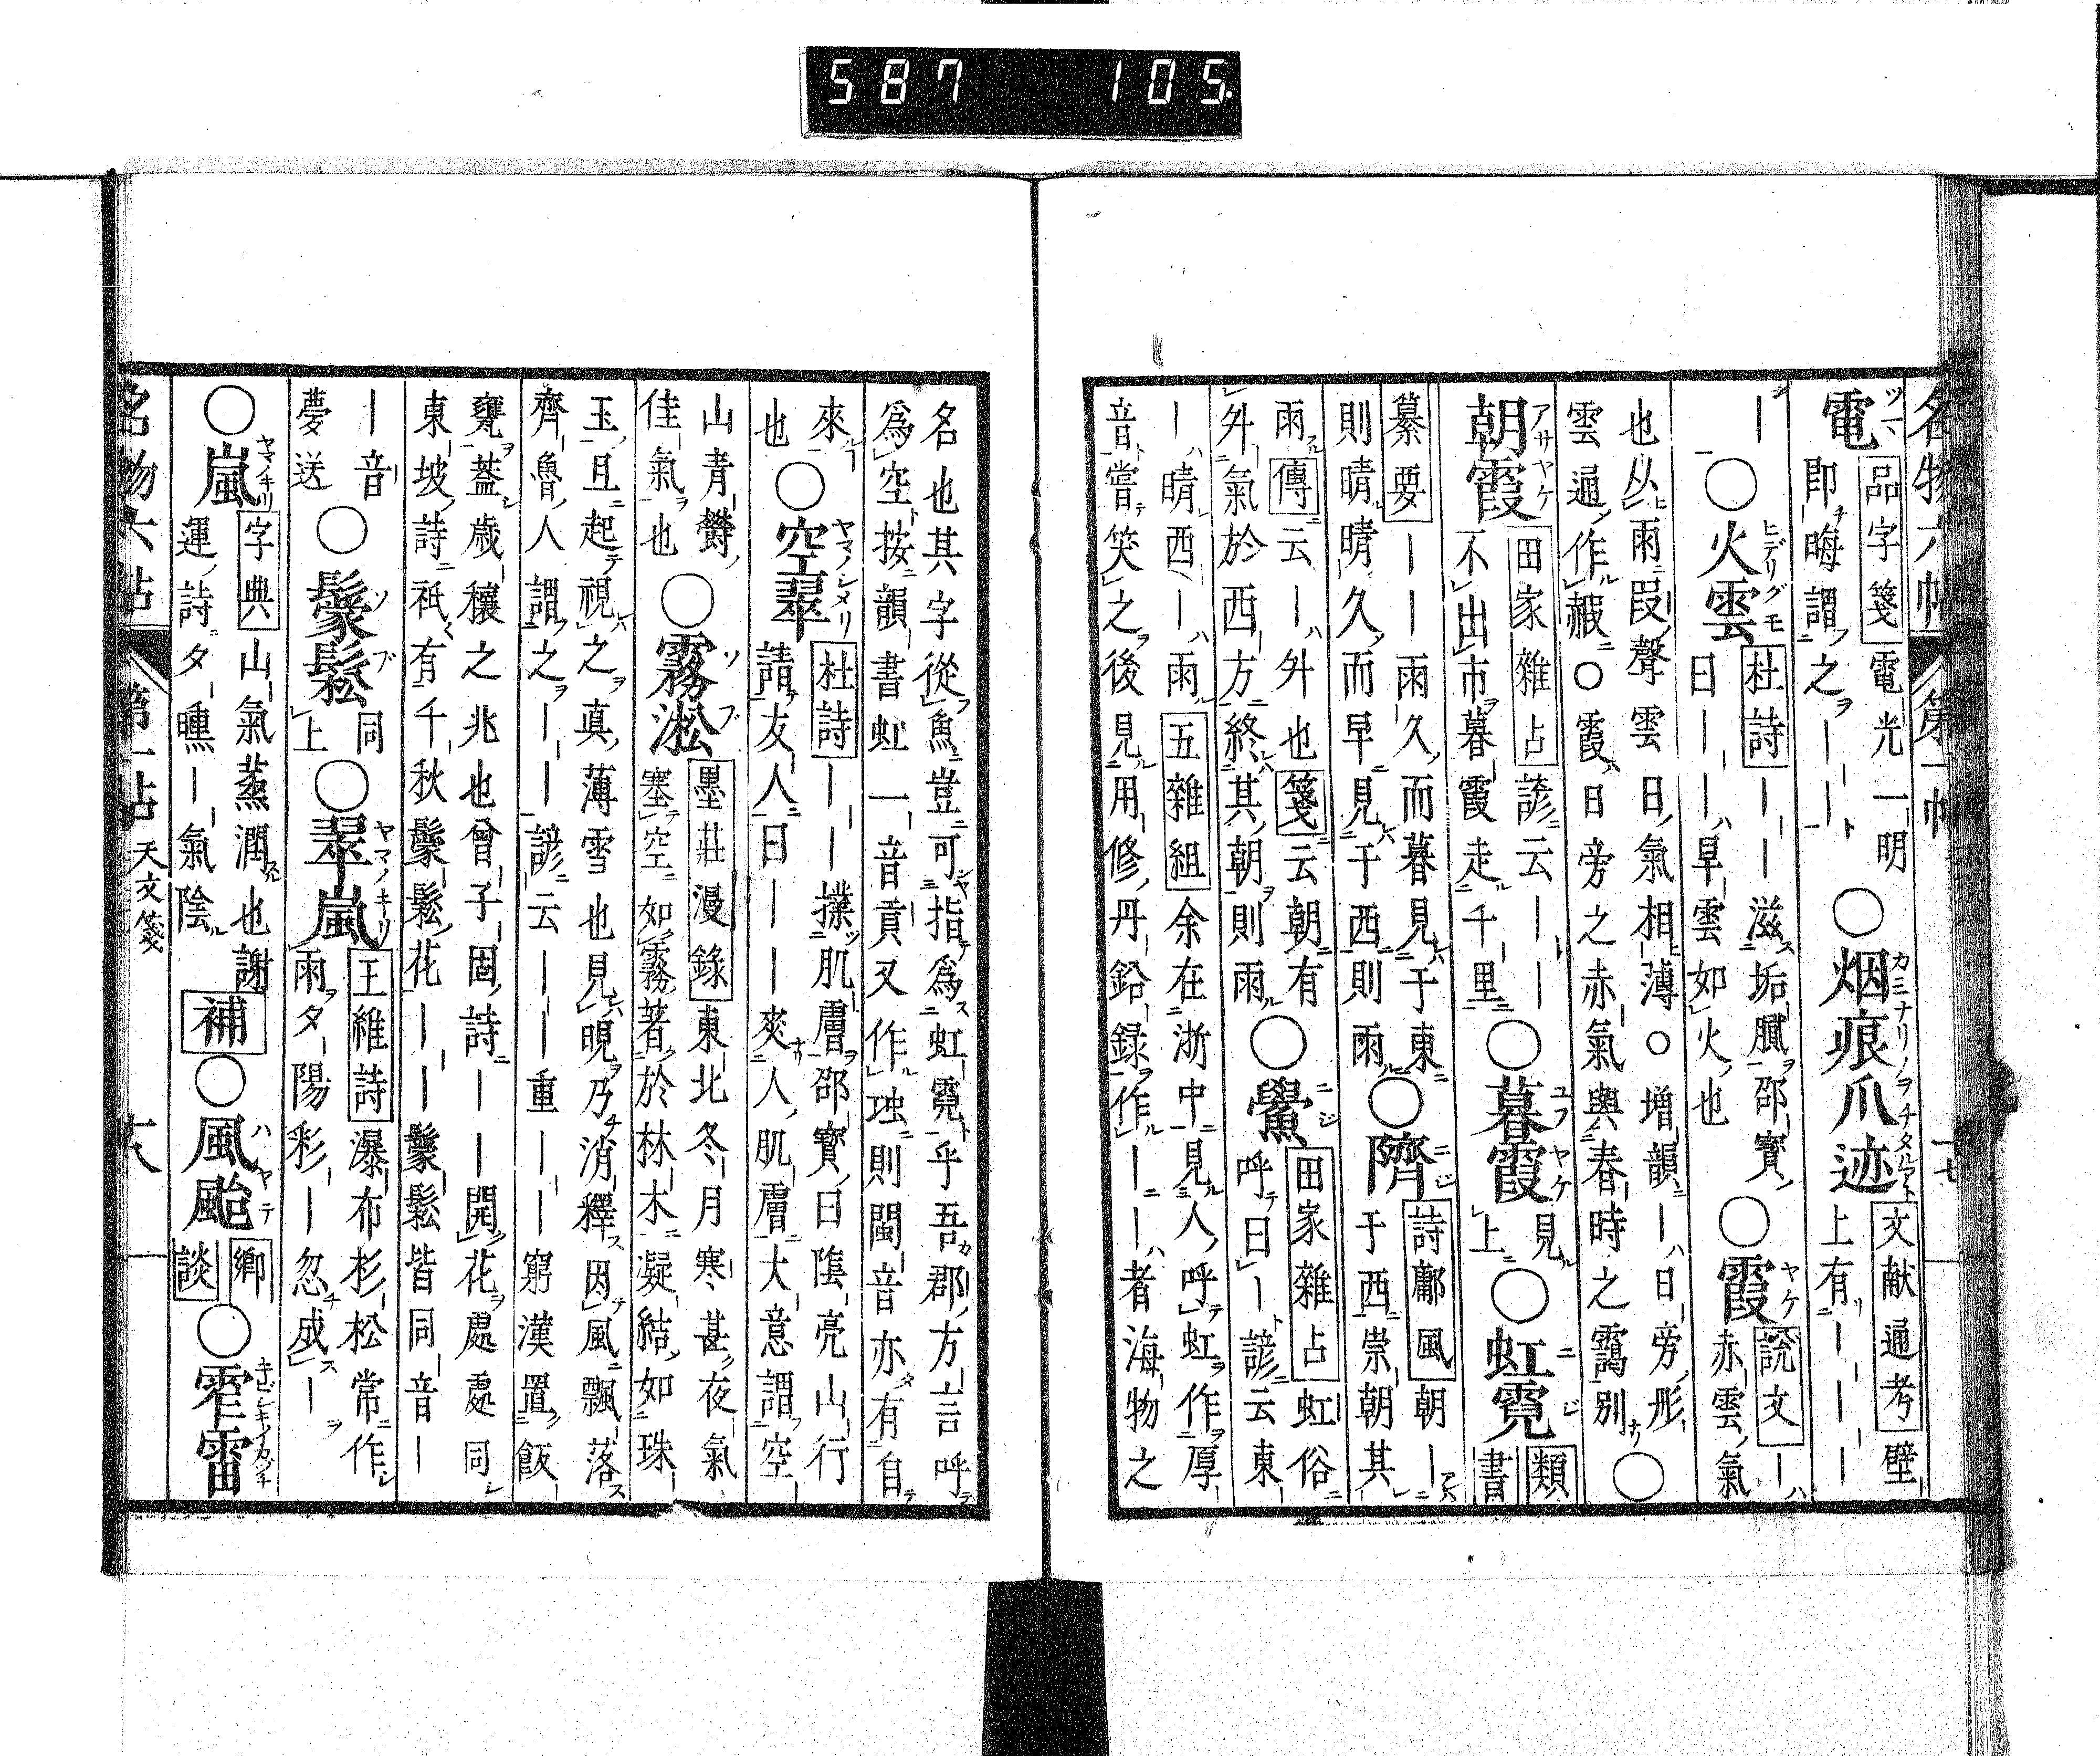 名物六帖 第一帖 十七
電 品字箋 電光一明
即晦謂之｜｜
○烟痕爪迹 文献通考 壁
上有｜｜｜｜
｜○火雲 杜詩 ｜｜滋垢膩邵寶
曰｜｜旱雲如火也
○霞 說文 ｜
赤雲氣
也从雨叚聲雲日氣相薄○增韻｜日旁彤
雲通作赮○霞日旁之赤氣與春時之靄別 ○
朝霞 田家雜占 諺云｜｜
不出市暮霞走千里
○暮霞 見
上
○虹霓 類
書
纂要 ｜｜雨久而暮見于東
則晴晴久而早見于西則雨
○隮 詩鄘風 朝｜
于西崇朝其
雨 傳 云｜升也 箋 云朝有
升氣於西方終其朝則雨
○鱟 田家雜占 虹俗
呼曰｜諺云東
｜晴西｜雨 五雜組 余在浙中見人呼虹作厚
音嘗笑之後見用修丹鉛録作｜｜者海物之
名也其字從魚豈可指爲虹霓乎吾郡方言呼
爲空按韻書虹一音貢又作則閩音亦有自
來
也
○空翠 杜詩 ｜｜撲肌膚邵寶曰隂亮山行
請友人曰｜｜爽人肌膚大意謂空
山青欝
佳氣也
○霧淞 墨莊漫錄 東北冬月寒甚夜氣
塞空如霧著於林木凝結如珠
玉旦起視之真薄雪也見晛乃消釋因風飄落
齊魯人謂之｜｜諺云｜｜重｜｜窮漢置飯
甕蓋歲穰之兆也曾子固詩｜｜開花處處同
東坡詩祇有千秋鬆花｜｜鬆皆同音｜
｜音
夢送
○鬆 同
上
○翠嵐 王維詩 瀑布杉松常作
雨夕陽彩｜忽成｜
○嵐 字典 山氣蒸潤也謝
運詩夕曛｜氣陰
補 ○風颱 鄉
談
○霅雷
名物六帖 第一帖 天文箋 大